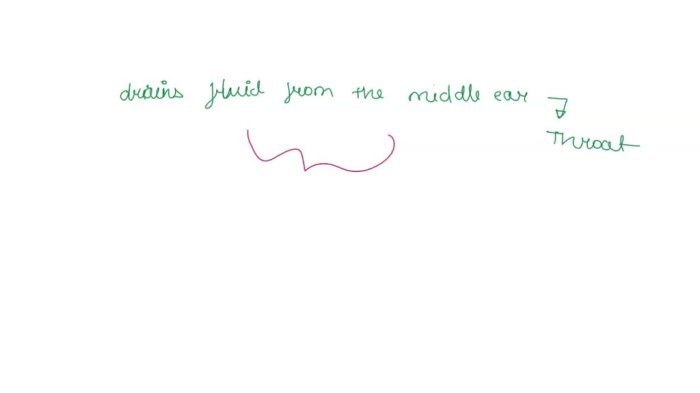 drains fluid from the middle ear
Throat